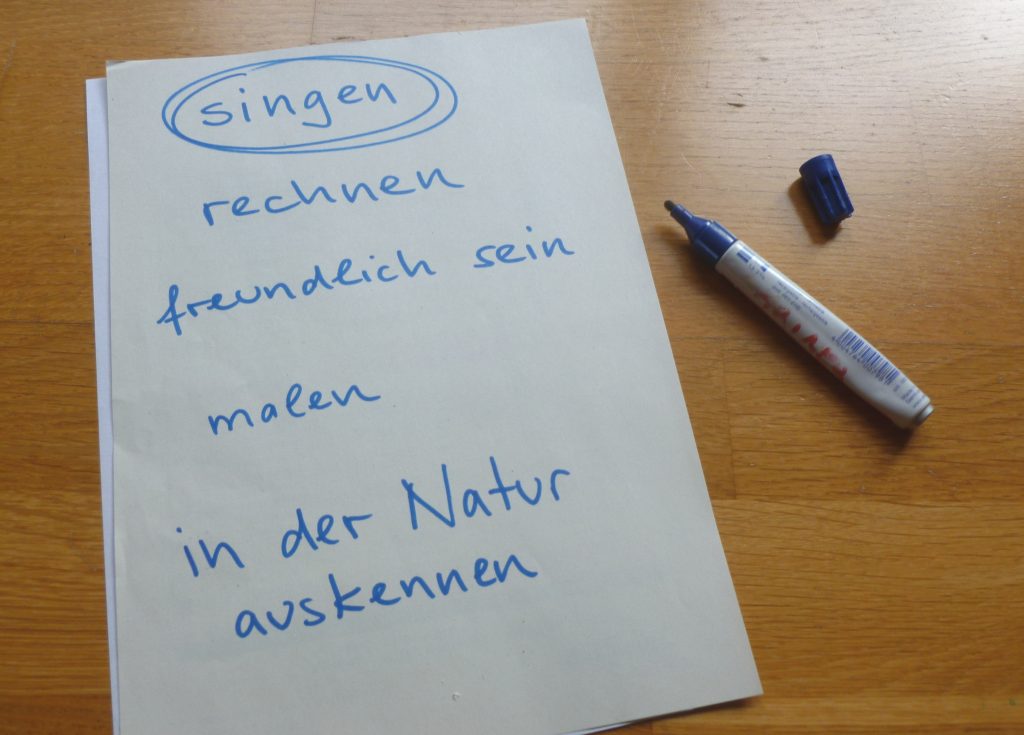 singen
rechnen
freundlich sein
malen
in der Natur
auskennen